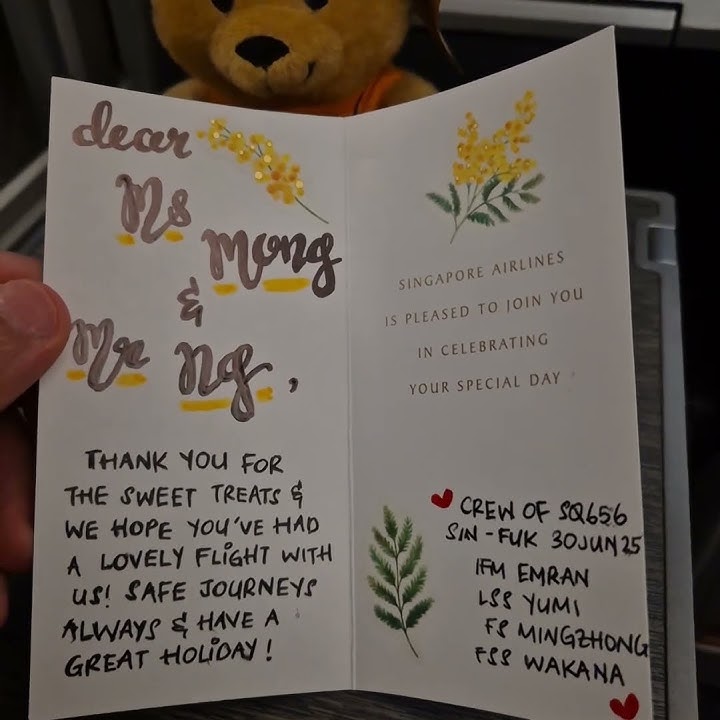 dear
Ms
Mong
&
Mr Ng,
THANK YOU FOR
THE SWEET TREATS &
WE HOPE YOU'VE HAD
A LOVELY FLIGHT WITH
US! SAFE JOURNEYS
ALWAYS & HAVE A
GREAT HOLIDAY!
SINGAPORE AIRLINES
IS PLEASED TO JOIN YOU
IN CELEBRATING
YOUR SPECIAL DAY
CREW OF SQ656
SIN - FUK 30JUN25
IFM EMRAN
LSS YUMI
FS MINGZHONG
FSS WAKANA